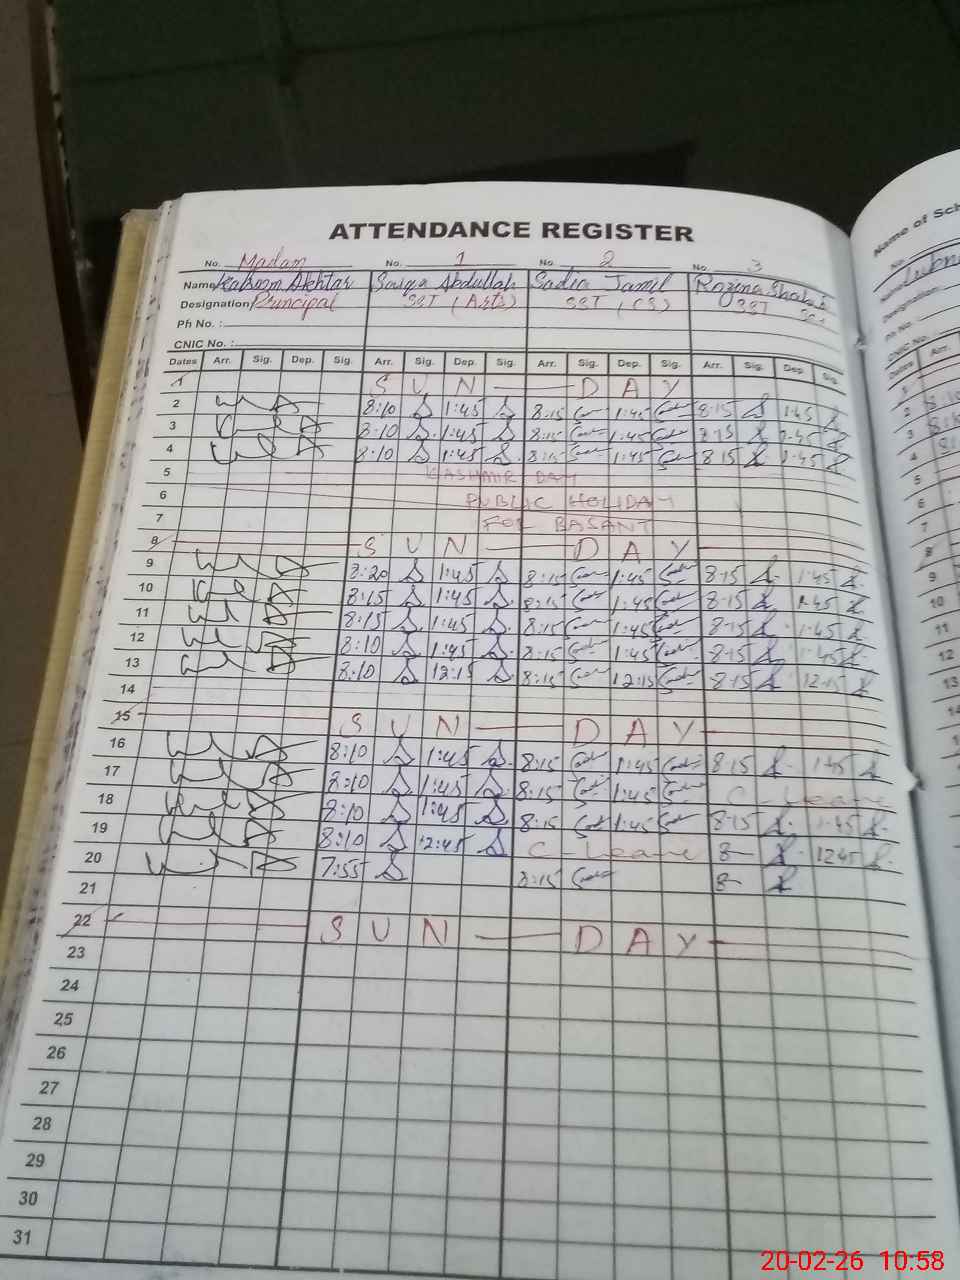 ATTENDANCE REGISTER
Name of Sch
No. Madam No. 1 No. 2 No. 3
Name Akhtar Saiqa Abdullah Sadia Jamil Rozina
Designation Principal SST (Arts) SST (CS) SST
Ph No. :
CNIC No. :
Dates Arr. Sig. Dep. Sig. Arr. Sig. Dep. Sig. Arr. Sig. Dep. Sig. Arr. Sig. Dep. Sig.
1 S U N — D A Y
2 8:10 1:45 8:15 1:45 8:15 1:45
3 8:10 1:45 8:15 1:45 8:15 1:45
4 8:10 1:45 8:15 1:45 8:15 1:45
5 KASHMIR DAY
6 PUBLIC HOLIDAY
7 FOR BASANT
8 S U N — D A Y
9 8:20 1:45 8:15 1:45 8:15 1:45
10 8:15 1:45 8:15 1:45 8:15 1:45
11 8:15 1:45 8:15 1:45 8:15 1:45
12 8:10 1:45 8:15 1:45 8:15 1:45
13 8:10 12:15 8:15 12:15 8:15 12:15
14
15 S U N — D A Y
16 8:10 1:45 8:15 1:45 8:15 1:45
17 8:10 1:45 8:15 1:45 C-Leave
18 8:10 1:45 8:15 1:45 8:15 1:45
19 8:10 12:45 C-Leave 8— 1245
20 7:55 8:15 8—
21
22 S U N — D A Y
23
24
25
26
27
28
29
30
31
20-02-26 10:58